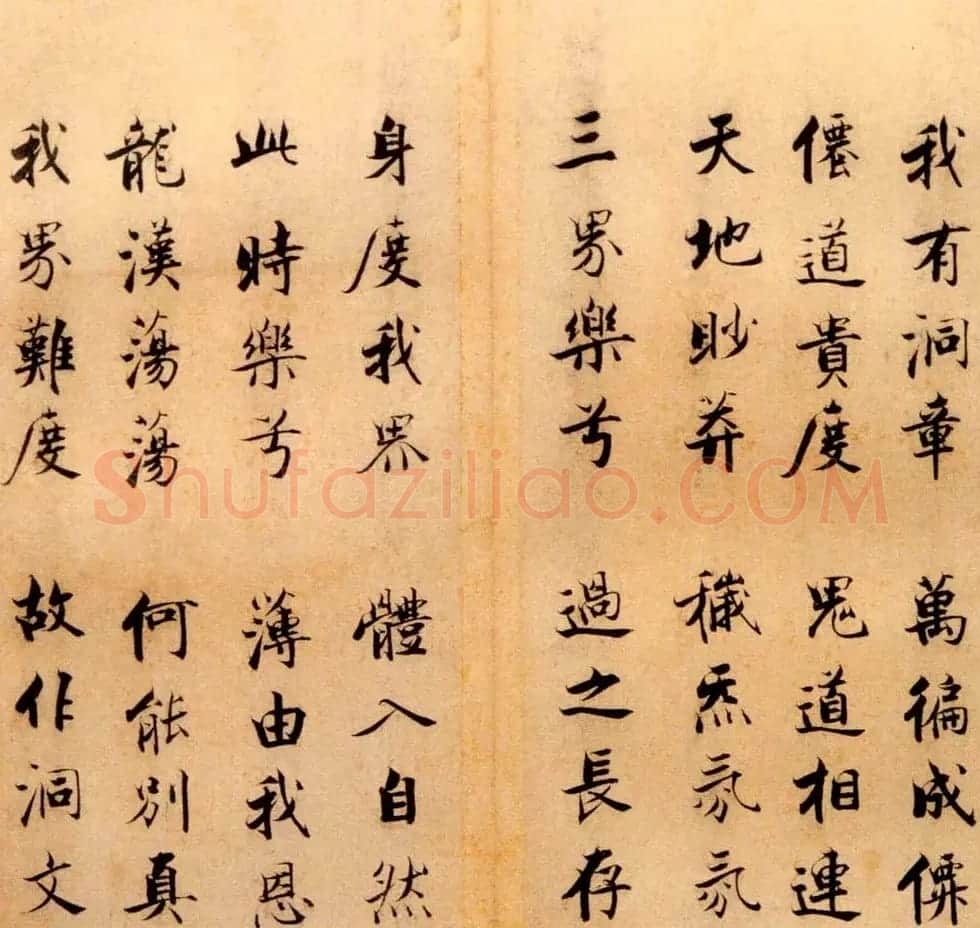 我有洞章 萬徧成僊
僊道貴度 鬼道相連
天地眇莽 穢炁氛氛
三界樂兮 過之長存
身度我界 體入自然
此時樂兮 薄由我恩
龍漢蕩蕩 何能別真
我界難度 故作洞文
Shufaziliao.COM